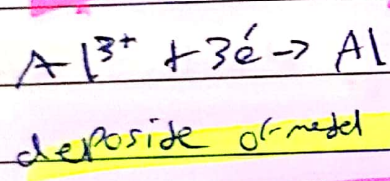 Al³⁺ + 3é -> Al
deposide of medel